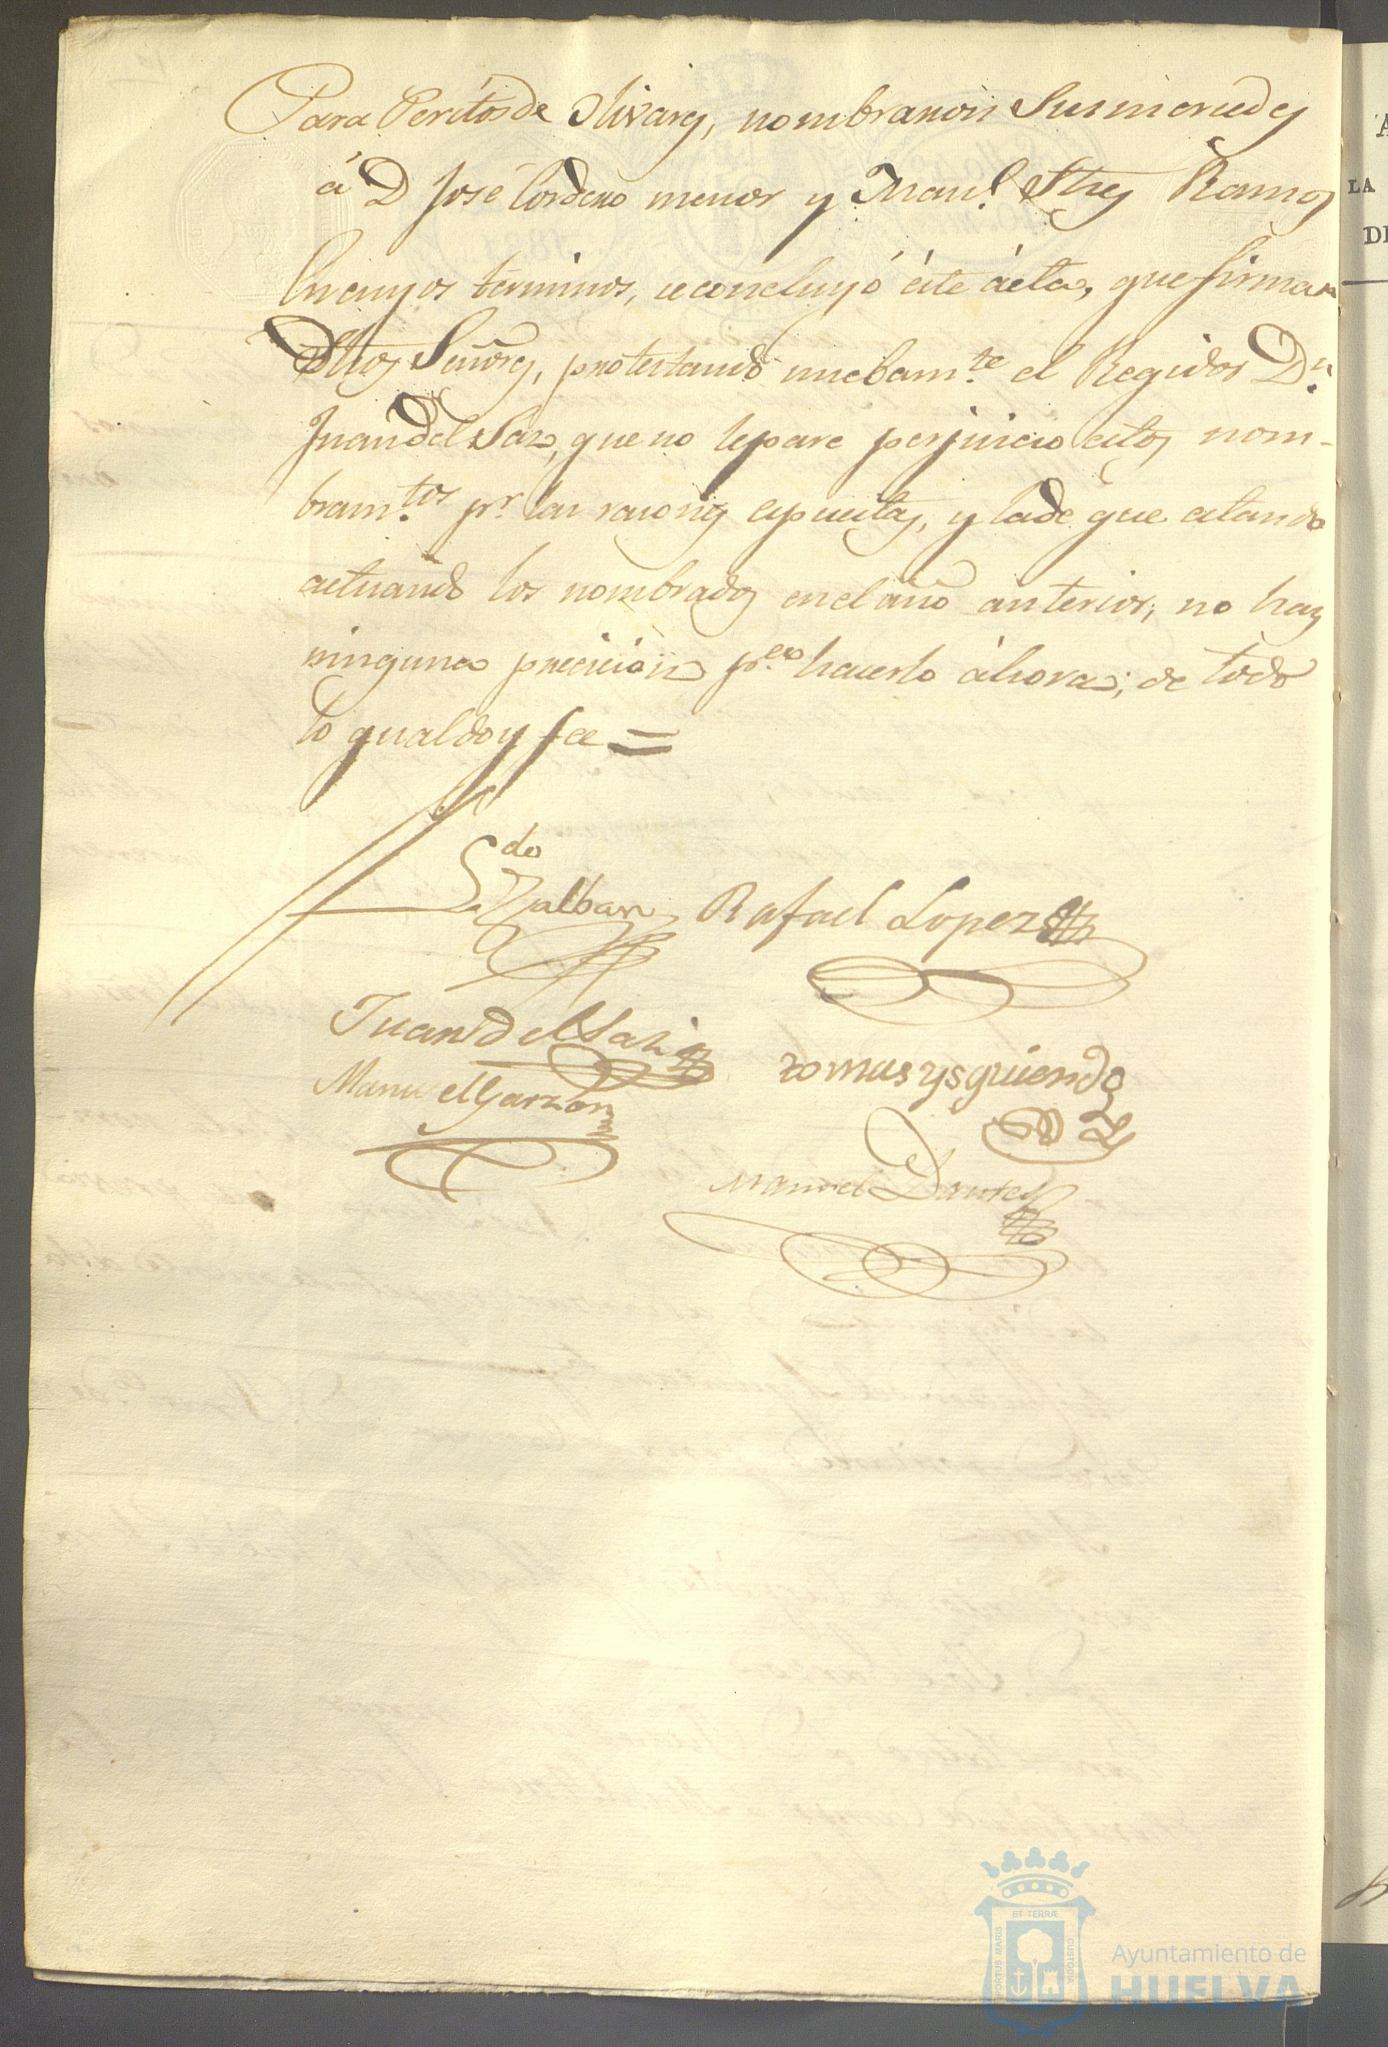 Para Peritos de Olivares, nombraron Sus mercedes
á D José Cordero menor y Man.l Ramos
En cuyos terminos, se concluyó éste ácta, que firman
Dhos Señores, protestando nuebam.te el Regidor D.n
Juan del Saz, que no le pare perjuicio estos nom-
bram.tos pr. las rasones espuestas, y la de que estando
actuando los nombrados en el año anterior, no hay
ninguna precicion p.a hacerlo áhora; de todo
lo qual doy fee =
L.do
Zalban Rafael Lopez
Juan del Saz
tomas ysquierdo
Manuel Garzon
Manuel Dantes
ET TERRÆ
PORTUS MARIS
CUSTODIA
Ayuntamiento de
HUELVA
A
LA
DE